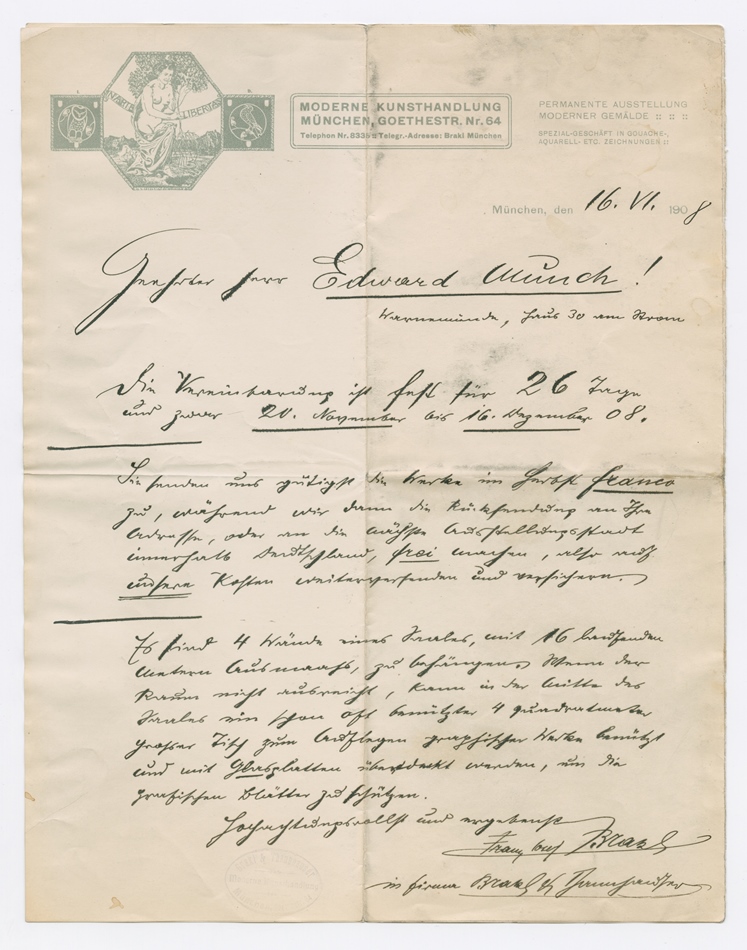 IN ARTE LIBERTAS
MODERNE KUNSTHANDLUNG
MÜNCHEN, GOETHESTR. Nr. 64
Telephon Nr. 8335 :: Telegr.-Adresse: Brakl München
PERMANENTE AUSSTELLUNG
MODERNER GEMÄLDE :: :: ::
SPEZIAL-GESCHÄFT IN GOUACHE-,
AQUARELL- ETC. ZEICHNUNGEN ::
München, den 16. VI. 1908
Geehrter Herr Edward Munch!
Warnemünde, Haus 30 am Strom
Die Vereinbarung ist fest für 26 Tage
und zwar 20. November bis 16. Dezember 08.
Sie senden uns gütigst die Werke im Herbst franco
zu, während wir dann die Rücksendung an Ihre
Adresse, oder an die nächste Ausstellungsstadt
innerhalb Deutschland, frei machen, also auf
unsere Kosten weiterversenden und versichern.
Es sind 4 Wände eines Saales, mit 16 laufenden
Metern Ausmaass, zu behängen. Wenn der
Raum nicht ausreicht, kann in der Mitte des
Saales ein schon oft benützter 4 quadratmeter
grosser Tisch zum Auflegen graphischer Werke benützt
und mit Glasplatten überdeckt werden, um die
grafischen Blätter zu schützen.
Hochachtungsvollst und ergebenst
Franz Josef Brakl
in Firma Brakl & Thannhauser